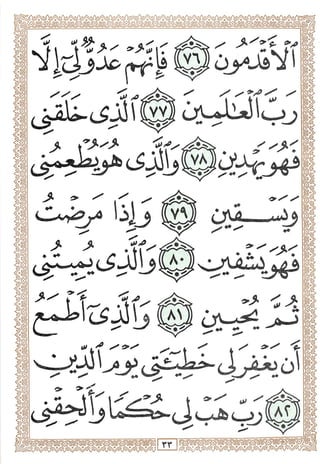 ٱلْأَقْدَمُونَ ٧٦ فَإِنَّهُمْ عَدُوٌّ لِّىٓ إِلَّا
رَبَّ ٱلْعَٰلَمِينَ ٧٧ ٱلَّذِى خَلَقَنِى
فَهُوَ يَهْدِينِ ٧٨ وَٱلَّذِى هُوَ يُطْعِمُنِى
وَيَسْقِينِ ٧٩ وَإِذَا مَرِضْتُ
فَهُوَ يَشْفِينِ ٨٠ وَٱلَّذِى يُمِيتُنِى
ثُمَّ يُحْيِينِ ٨١ وَٱلَّذِىٓ أَطْمَعُ
أَن يَغْفِرَ لِى خَطِيٓـَٔتِى يَوْمَ ٱلدِّينِ
٨٢ رَبِّ هَبْ لِى حُكْمًا وَأَلْحِقْنِى
٣٣